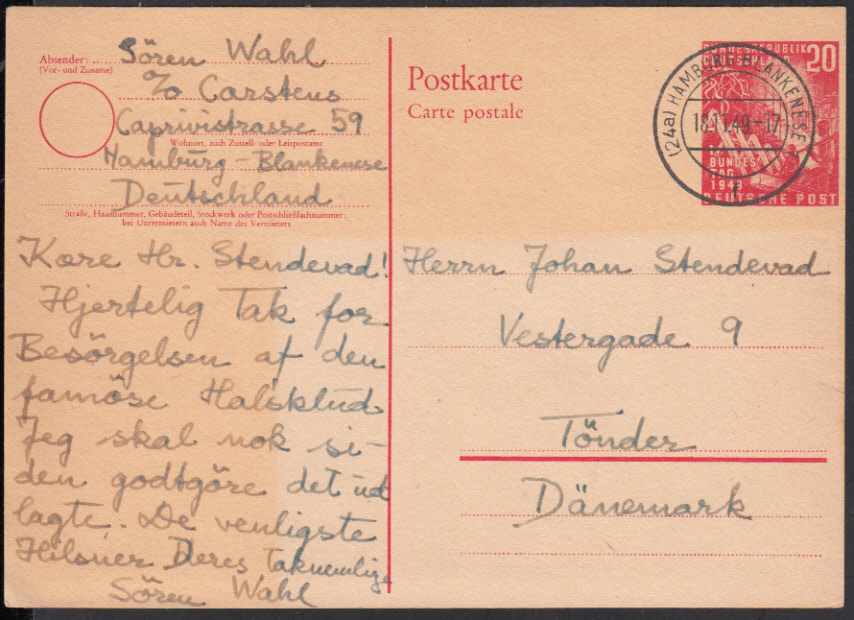 Absender:
(Vor- und Zuname)
Sören Wahl
c/o Carstens
Caprivistrasse 59
Wohnort, auch Zustell- oder Leitpostamt
Hamburg-Blankenese
Deutschland
Straße, Hausnummer, Gebäudeteil, Stockwerk oder Postschließfachnummer;
bei Untermietern auch Name des Vermieters
Kære Hr. Stendevad!
Hjertelig Tak for
Besörgelsen af den
famöse Halsklud.
Jeg skal nok si-
den godtgöre det ud
lagte. De venligste
Hilsner Deres taknemlige
Sören Wahl
Postkarte
Carte postale
BUNDESREPUBLIK
DEUTSCHLAND
20
BUNDES
TAG
1949
DEUTSCHE POST
(24a) HAMBURG-BLANKENESE
18.11.49.-17
Herrn Johan Stendevad
Vestergade 9
Tönder
Dänemark